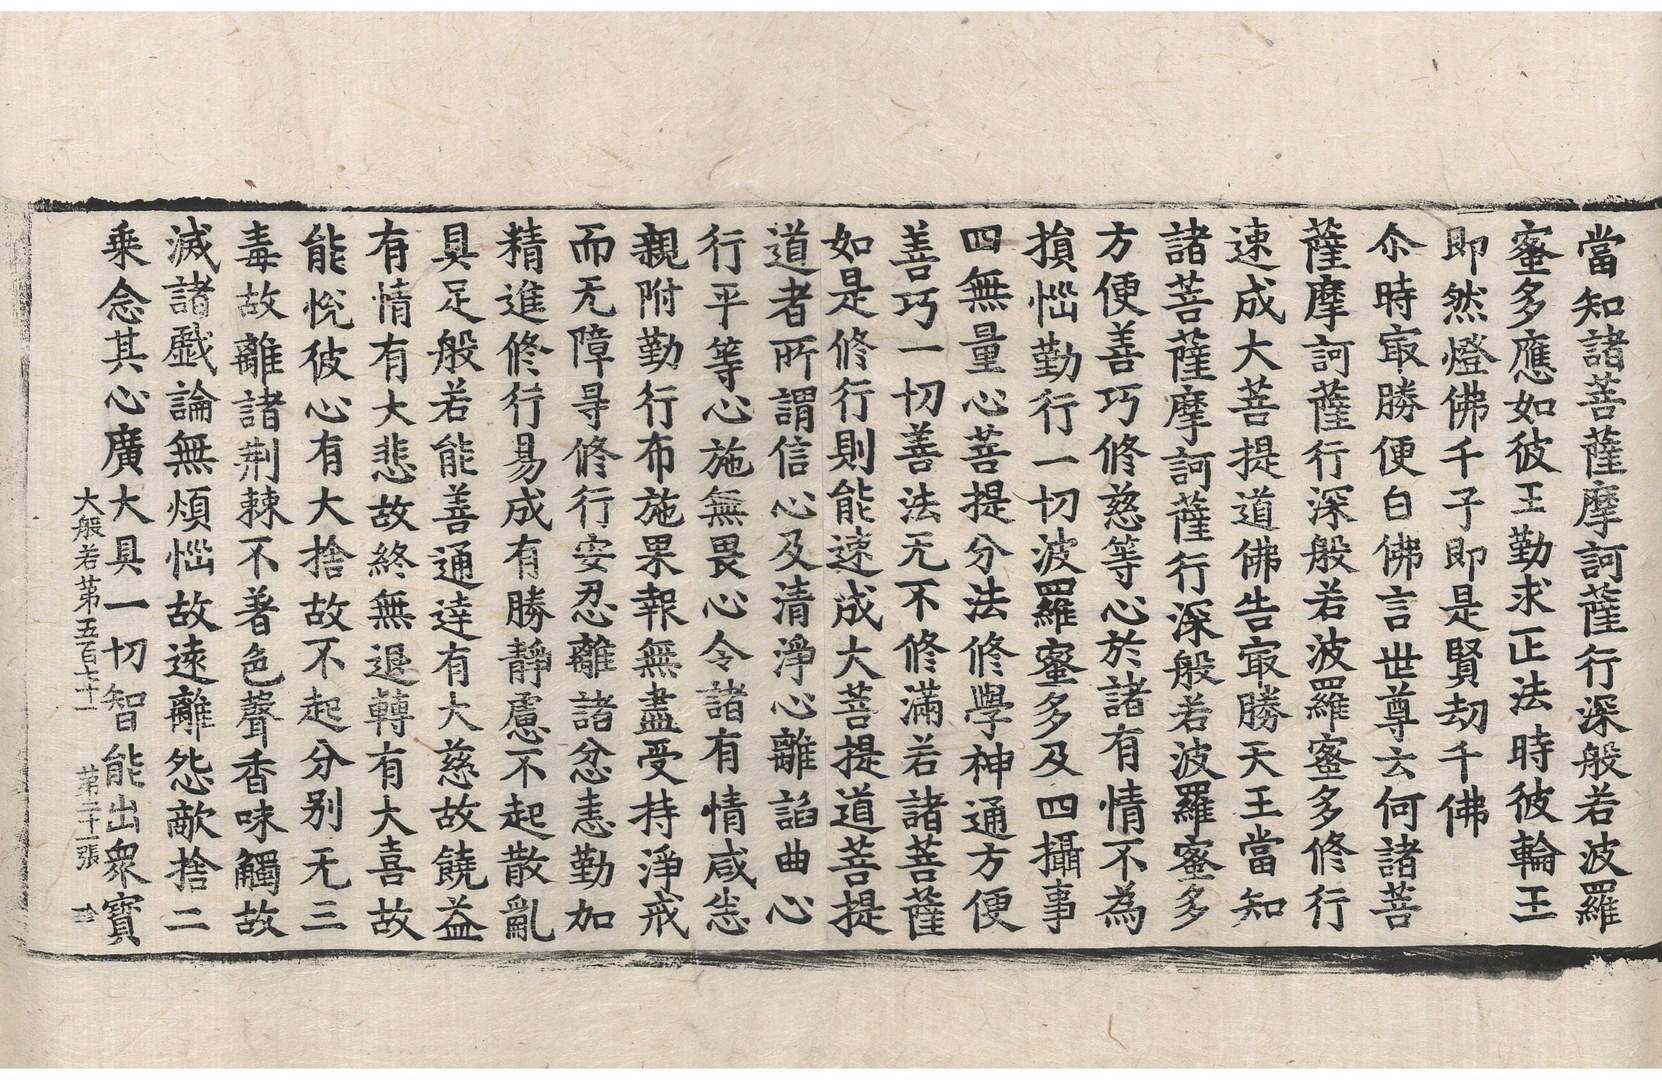 當知諸菩薩摩訶薩行深般若波羅
蜜多應如彼王勤求正法時彼輪王
即然燈佛千子即是賢劫千佛
尒時㝡勝便白佛言世尊云何諸菩
薩摩訶薩行深般若波羅蜜多修行
速成大菩提道佛告㝡勝天王當知
諸菩薩摩訶薩行深般若波羅蜜多
方便善巧修慈等心於諸有情不為
損惱勤行一切波羅蜜多及四攝事
四無量心菩提分法修學神通方便
善巧一切善法无不修滿若諸菩薩
如是修行則能速成大菩提道菩提
道者所謂信心及清淨心離諂曲心
行平等心施無畏心令諸有情咸悉
親附勤行布施果報無盡受持淨戒
而无障㝵修行安忍離諸忿恚勤加
精進修行易成有勝靜慮不起散亂
具足般若能善通達有大慈故饒益
有情有大悲故終無退轉有大喜故
能悅彼心有大捨故不起分别无三
毒故離諸荆棘不著色聲香味觸故
滅諸戲論無煩惱故遠離怨敵捨二
乘念其心廣大具一切智能出衆寶
大般若第五百七十一 第二十一張 珍